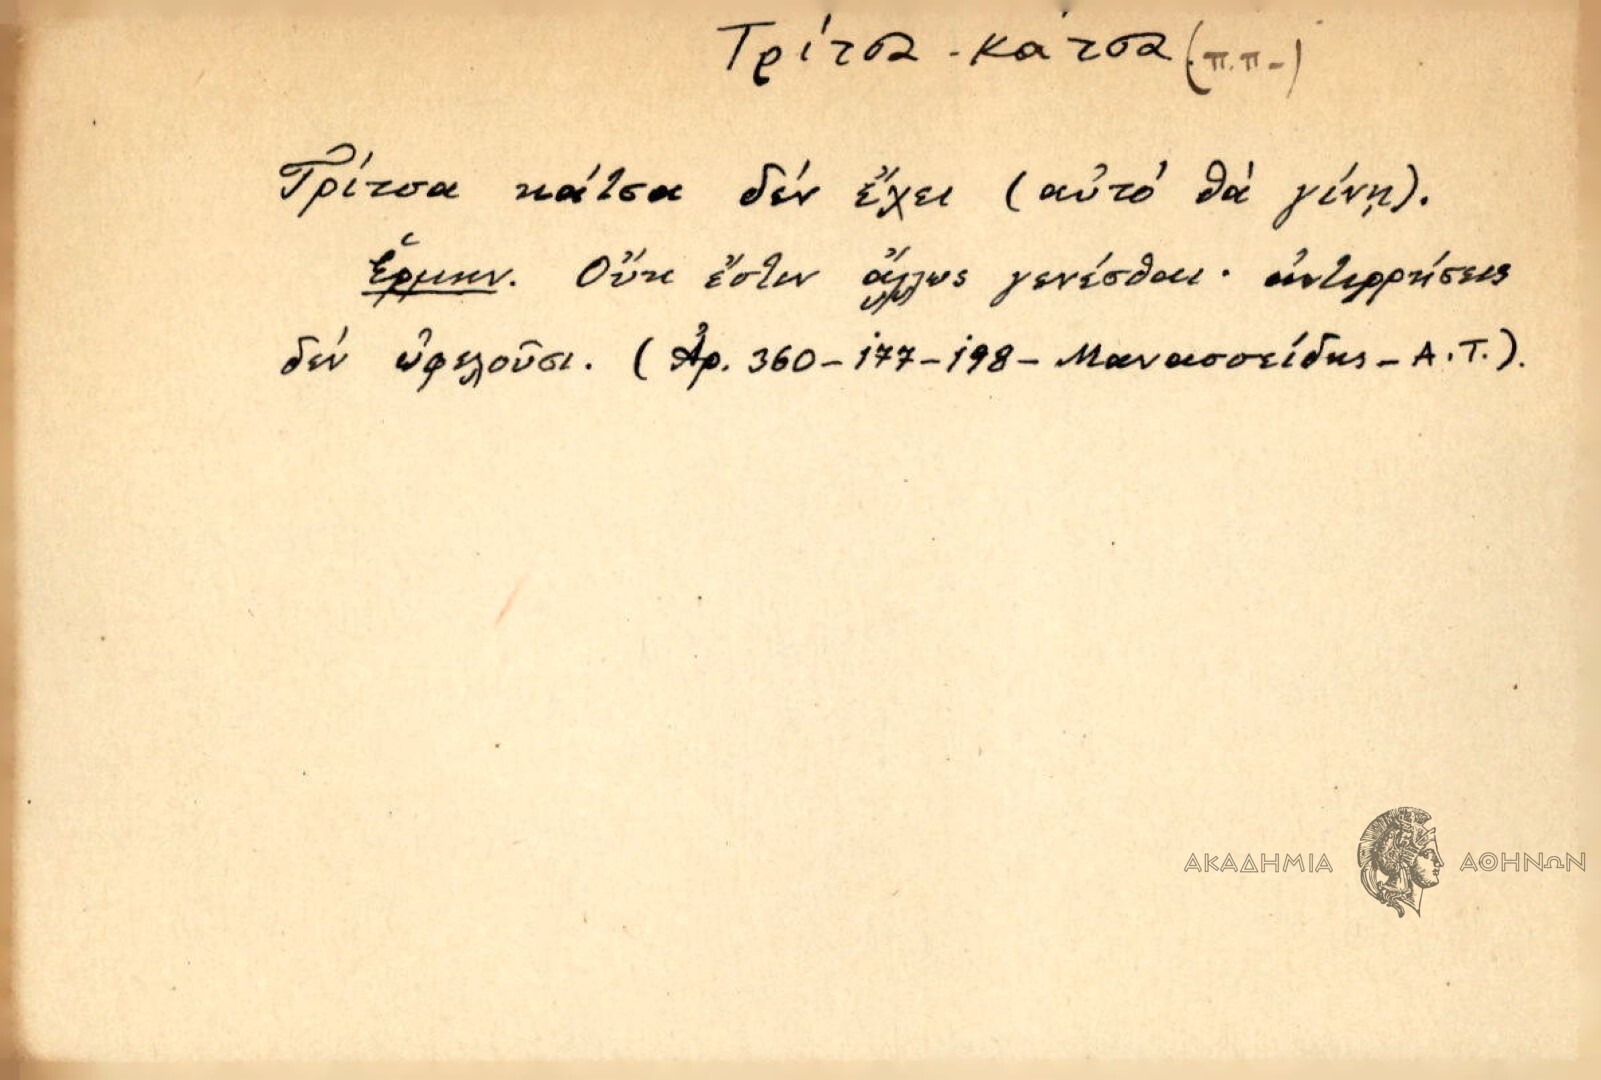 Τρίτσα - κάτσα (π.π-)
Τρίτσα κάτσα δέν ἔχει (αὐτό θά γίνῃ).
Ἑρμην. Οὔκ ἔστιν ἄλλως γενέσθαι· ἀντιρρήσεις
δέν ὠφελοῦσι. (Ἀρ. 360-177-198- Μανασσείδης - Α.Τ.).
ΑΚΑΔΗΜΙΑ ΑΘΗΝΩΝ